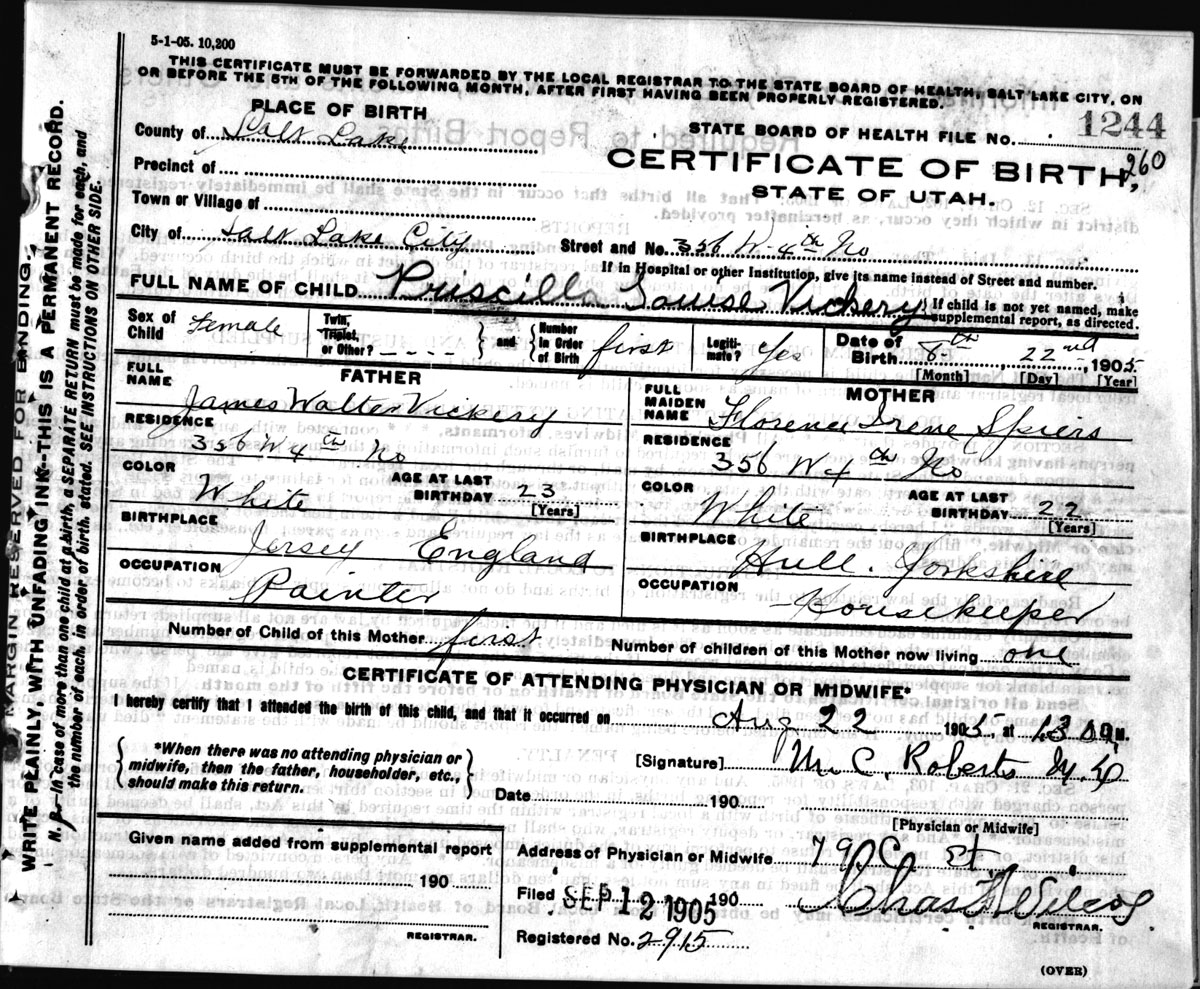 5-1-05. 10,200
THIS CERTIFICATE MUST BE FORWARDED BY THE LOCAL REGISTRAR TO THE STATE BOARD OF HEALTH, SALT LAKE CITY, ON
OR BEFORE THE 5TH OF THE FOLLOWING MONTH, AFTER FIRST HAVING BEEN PROPERLY REGISTERED.
PLACE OF BIRTH
County of Salt Lake
Precinct of
Town or Village of
City of Salt Lake City
STATE BOARD OF HEALTH FILE No. 1244
CERTIFICATE OF BIRTH, 260
STATE OF UTAH.
Street and No. 356 W-4th No
If in Hospital or other Institution, give its name instead of Street and number.
FULL NAME OF CHILD Priscilla Louise Vickery
If child is not yet named, make
supplemental report, as directed.
Sex of Child Female
Twin, Triplet, or Other? ----
and
Number in Order of Birth first
Legiti-mate? Yes
Date of Birth 8th 22nd 1905
[Month] [Day] [Year]
FATHER
FULL NAME James Walter Vickery
RESIDENCE 356 W 4th No
COLOR White
AGE AT LAST BIRTHDAY 23
[Years]
BIRTHPLACE Jersey England
OCCUPATION Painter
MOTHER
FULL MAIDEN NAME Florence Irene Spiers
RESIDENCE 356 W 4th No
COLOR White
AGE AT LAST BIRTHDAY 22
[Years]
BIRTHPLACE Hull. Yorkshire
OCCUPATION Housekeeper
Number of Child of this Mother first
Number of children of this Mother now living one
CERTIFICATE OF ATTENDING PHYSICIAN OR MIDWIFE*
I hereby certify that I attended the birth of this child, and that it occurred on Aug 22 1905, at M.
*When there was no attending physician or
midwife, then the father, householder, etc.,
should make this return.
[Signature] M. C. Roberts M.D
Date 190
[Physician or Midwife]
Given name added from supplemental report
190
REGISTRAR.
Address of Physician or Midwife 79 C St
Filed SEP 12 1905 190
Chas Wilcox
REGISTRAR.
Registered No. 2915
(OVER)
MARGIN RESERVED FOR BINDING.
WRITE PLAINLY, WITH UNFADING INK--THIS IS A PERMANENT RECORD.
N. B.--In case of more than one child at a birth, a SEPARATE RETURN must be made for each, and
the number of each, in order of birth, stated. SEE INSTRUCTIONS ON OTHER SIDE.